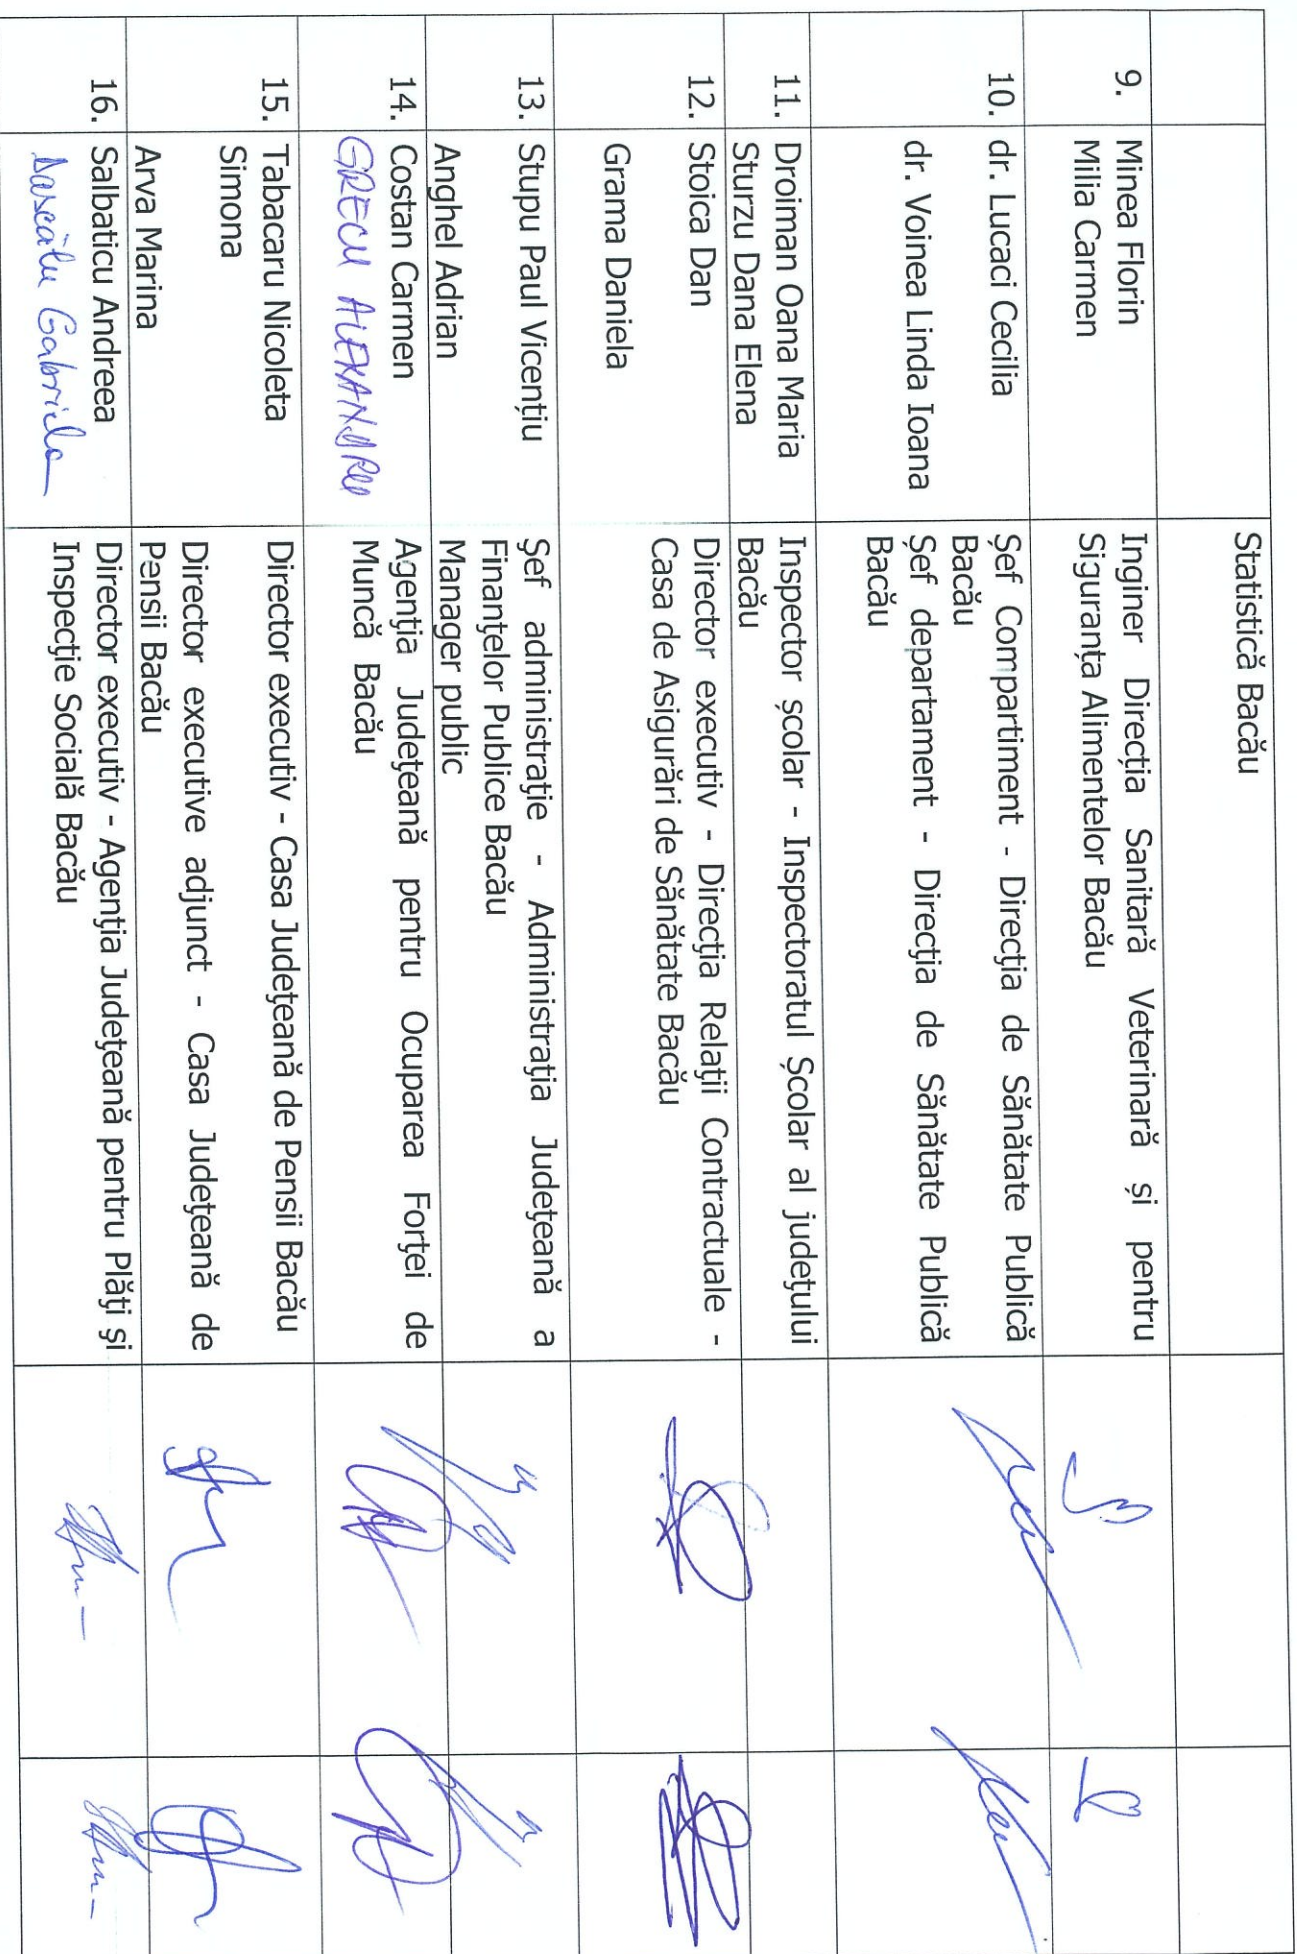 Statistică Bacău
9.
Minea Florin
Milia Carmen
Inginer Direcția Sanitară Veterinară și pentru
Siguranța Alimentelor Bacău
10.
dr. Lucaci Cecilia
dr. Voinea Linda Ioana
Șef Compartiment - Direcția de Sănătate Publică
Bacău
Șef departament - Direcția de Sănătate Publică
Bacău
11.
Droiman Oana Maria
Sturzu Dana Elena
Inspector școlar - Inspectoratul Școlar al județului
Bacău
12.
Stoica Dan
Grama Daniela
Director executiv - Direcția Relații Contractuale -
Casa de Asigurări de Sănătate Bacău
13.
Stupu Paul Vicențiu
Anghel Adrian
Șef administrație - Administrația Județeană a
Finanțelor Publice Bacău
Manager public
14.
Costan Carmen
GRECU ALEXANDRU
Agenția Județeană pentru Ocuparea Forței de
Muncă Bacău
15.
Tabacaru Nicoleta
Simona
Arva Marina
Director executiv - Casa Județeană de Pensii Bacău
Director executive adjunct - Casa Județeană de
Pensii Bacău
16.
Salbaticu Andreea
Dascălu Gabriela
Director executiv - Agenția Județeană pentru Plăți și
Inspecție Socială Bacău